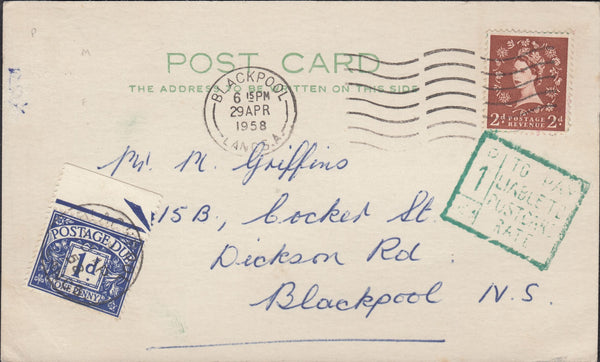 P
M
F
POST CARD
THE ADDRESS TO BE WRITTEN ON THIS SIDE
BLACKPOOL
6 15 PM
29 APR
1958
LANCS.
2d POSTAGE REVENUE 2d
TO PAY
1
LIABLE TO
POSTCARD
RATE
Mr. M. Griffins
15B, Cocker St.
Dickson Rd.
Blackpool N.S.
POSTAGE DUE
1d
ONE PENNY